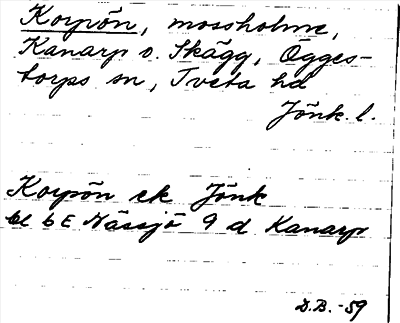 Korpön, mossholme,
Kanarp o. Skägg, Ögges-
torps sn, Tveta hd
Jönk. l.
Korpön ek Jönk
bl 6E Nässjö 9 d Kanarp
D.B. -59